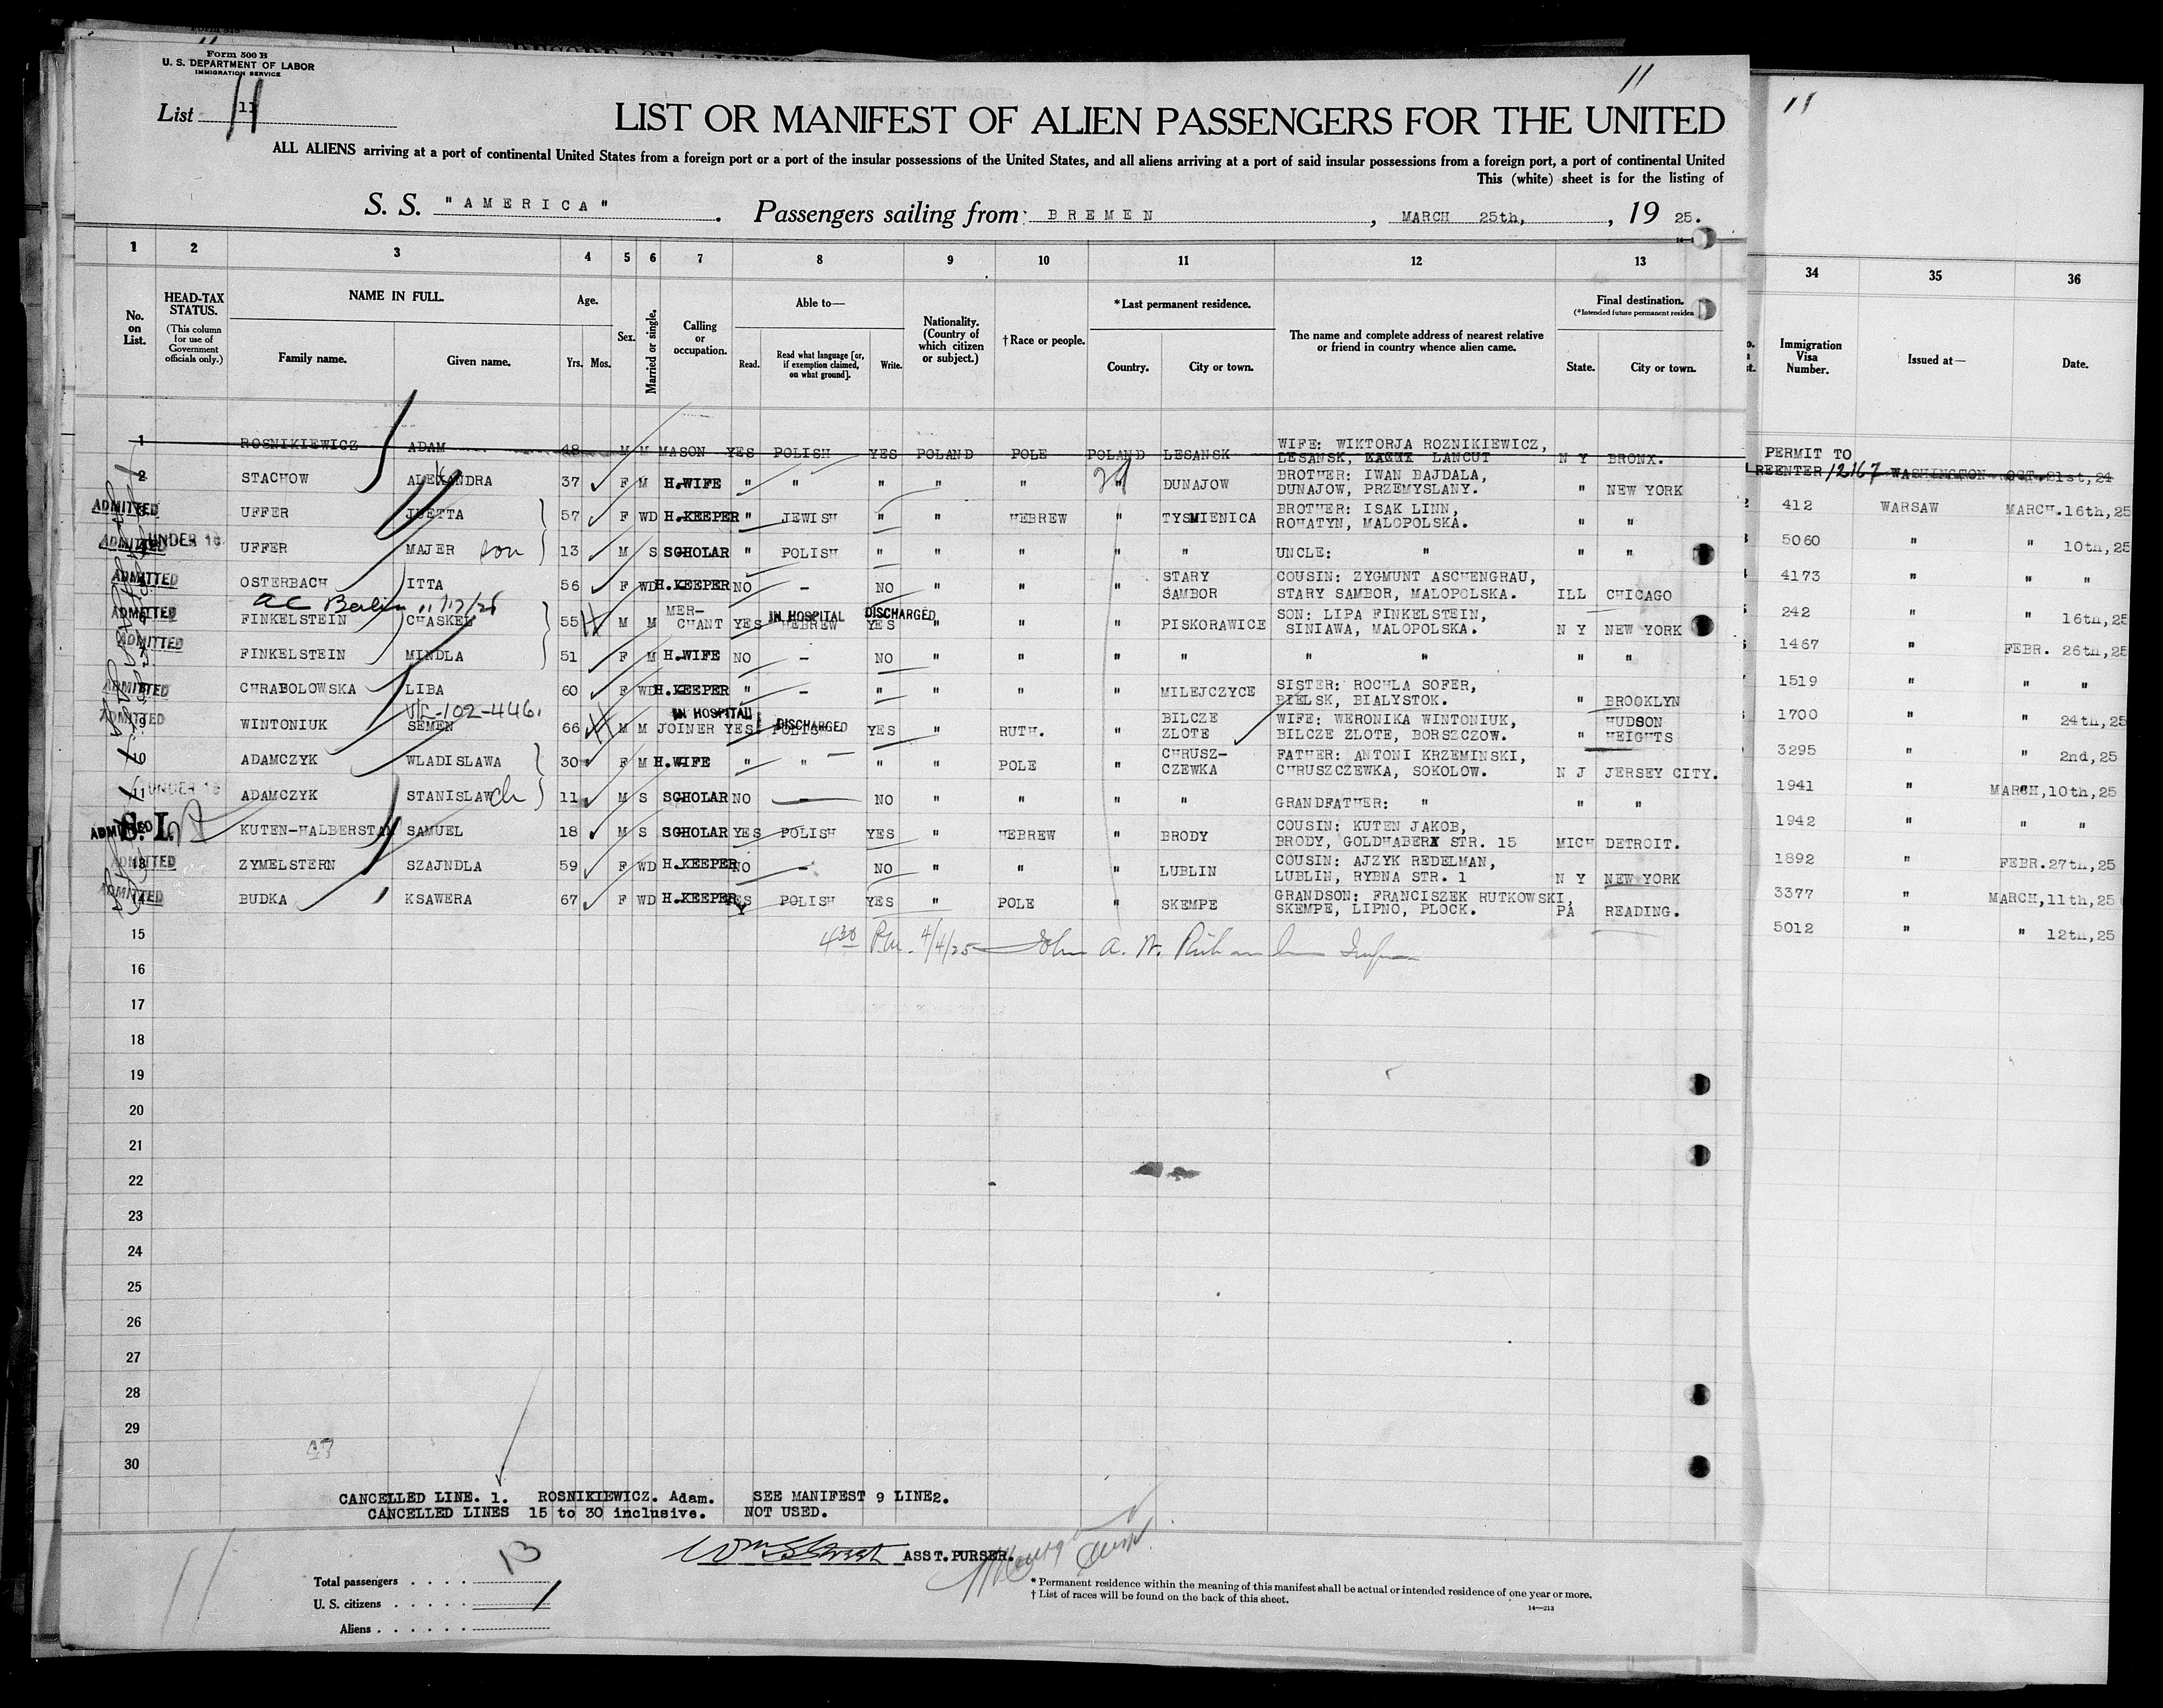 Form 500 B
U. S. DEPARTMENT OF LABOR
IMMIGRATION SERVICE
List 11
11
11
LIST OR MANIFEST OF ALIEN PASSENGERS FOR THE UNITED
ALL ALIENS arriving at a port of continental United States from a foreign port or a port of the insular possessions of the United States, and all aliens arriving at a port of said insular possessions from a foreign port, a port of continental United
This (white) sheet is for the listing of
S. S. "AMERICA". Passengers sailing from: BREMEN, MARCH 25th, , 19 25.
1 2 3 4 5 6 7 8 9 10 11 12 13 34 35 36
No. on List. HEAD-TAX STATUS. (This column for use of Government officials only.) NAME IN FULL. Family name. Given name. Age. Yrs. Mos. Sex. Married or single. Calling or occupation. Able to— Read. Read what language [or, if exemption claimed, on what ground]. Write. Nationality. (Country of which citizen or subject.) † Race or people. * Last permanent residence. Country. City or town. The name and complete address of nearest relative or friend in country whence alien came. Final destination. (*Intended future permanent residen State. City or town. Immigration Visa Number. Issued at— Date.
1 ROSNIKIEWICZ ADAM 48 M M MASON YES POLISH YES POLAND POLE POLAND LESANSK WIFE: WIKTORJA ROZNIKIEWICZ, LESANSK, LANCUT N Y BRONX. PERMIT TO REENTER 12167 WASHINGTON OCT. 21st, 24
2 STACHOW ALEXANDRA 37 F M H.WIFE " " " " " " DUNAJOW BROTHER: IWAN BAJDALA, DUNAJOW, PRZEMYSLANY. " NEW YORK 412 WARSAW MARCH.16th,25
ADMITTED 3 UFFER JUETTA 57 F WD H.KEEPER " JEWISH " " HEBREW " TYSMIENICA BROTHER: ISAK LINN, ROHATYN, MALOPOLSKA. " " 5060 " " 10th,25
ADMITTED 4 UNDER 16 UFFER MAJER son 13 M S SCHOLAR " POLISH " " " " " UNCLE: " " " 4173 " " "
ADMITTED OSTERBACH ITTA 56 F WD H.KEEPER NO - NO " " " STARY SAMBOR COUSIN: ZYGMUNT ASCHENGRAU, STARY SAMBOR, MALOPOLSKA. ILL CHICAGO 242 " " 16th,25
ac Berlin 11/17/25
ADMITTED FINKELSTEIN CHASKEL 55 M M MER-CHANT YES HEBREW IN HOSPITAL YES DISCHARGED " " " PISKORAWICE SON: LIPA FINKELSTEIN, SINIAWA, MALOPOLSKA. N Y NEW YORK 1467 " FEBR. 26th,25
ADMITTED FINKELSTEIN MINDLA 51 F M H.WIFE NO - NO " " " " " " " " 1519 " " "
ADMITTED CHRABOLOWSKA LIBA 60 F WD H.KEEPER " - " " " " MILEJCZYCE SISTER: ROCHLA SOFER, BIELSK, BIALYSTOK. " BROOKLYN 1700 " " 24th,25
ADMITTED 9 WINTONIUK SEMEN 66 M M JOINER YES IN HOSPITAL POLISH DISCHARGED YES " RUTH. " BILCZE ZLOTE WIFE: WERONIKA WINTONIUK, BILCZE ZLOTE, BORSZCZOW. " HUDSON HEIGHTS 3295 " " 2nd,25
10 ADAMCZYK WLADISLAWA 30 F M H.WIFE " " " " POLE " CHRUSZ-CZEWKA FATHER: ANTONI KRZEMINSKI, CHRUSZCZEWKA, SOKOLOW. N J JERSEY CITY. 1941 " MARCH,10th,25
11 UNDER 16 ADAMCZYK STANISLAW ch 11 M S SCHOLAR NO NO " " " " GRANDFATHER: " " " 1942 " " "
ADMITTED S.I. KUTEN-HALBERSTAM SAMUEL 18 M S SCHOLAR YES POLISH YES " HEBREW " BRODY COUSIN: KUTEN JAKOB, BRODY, GOLDHABER STR. 15 MICH DETROIT. 1892 " FEBR.27th,25
ADMITTED 13 ZYMELSTERN SZAJNDLA 59 F WD H.KEEPER NO - NO " " " LUBLIN COUSIN: AJZYK REDELMAN, LUBLIN, RYBNA STR. 1 N Y NEW YORK 3377 " MARCH,11th,25
ADMITTED 14 BUDKA KSAWERA 67 F WD H.KEEPER YES POLISH YES " POLE " SKEMPE GRANDSON: FRANCISZEK RUTKOWSKI, SKEMPE, LIPNO, PLOCK. PA READING. 5012 " " 12th,25
15 4 30 PM. 4/4/25 John A. W.
16
17
18
19
20
21
22
23
24
25
26
27
28
29
30
CANCELLED LINE. 1. ROSNIKIEWICZ. Adam. SEE MANIFEST 9 LINE2.
CANCELLED LINES 15 to 30 inclusive. NOT USED.
ASST.PURSER.
13
Total passengers
U. S. citizens
Aliens
* Permanent residence within the meaning of this manifest shall be actual or intended residence of one year or more.
† List of races will be found on the back of this sheet.
14—213